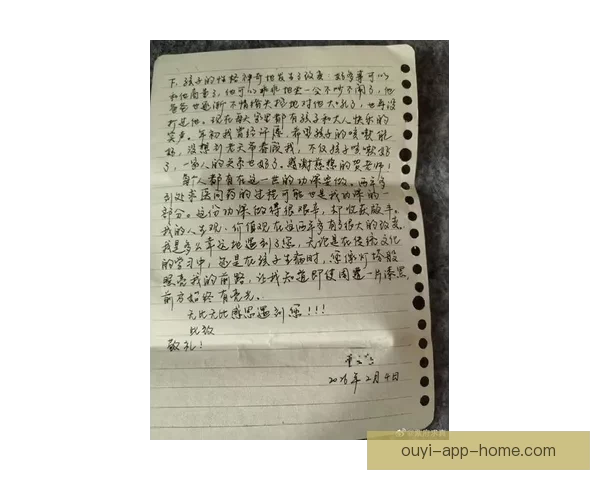 下,孩子的性格神奇地发生了改变:好多事可以
和他商量了,他可以乖乖地坐一会不吵不闹了,他
爸爸也逐渐不情绪失控地对他大吼了,也再没
打过他。现在每天家里都有孩子和大人快乐的
笑声。年初我曾经许愿,希望孩子的咳嗽能
好,没想到老天爷眷顾我,不仅孩子咳嗽好
了,一家人的关系也好了。感谢慈悲的贺老师!
每个人都有在这一世的功课要做。两年多
到处求医问药的过程可能也是我功课的一
部分。这份功课做得很艰辛,却收获颇丰。
我的人生观、价值观在这两年多有了很大的改变。
我是多么幸运地遇到了您,无论是在传统文化
的学习中,还是在孩子生病时,您像灯塔般
照亮我的前路,让我知道即使周遭一片漆黑,
前方始终有亮光。
无比无比感恩遇到您!!!
此致
敬礼!
年2月4日
ouyi-app-home.com